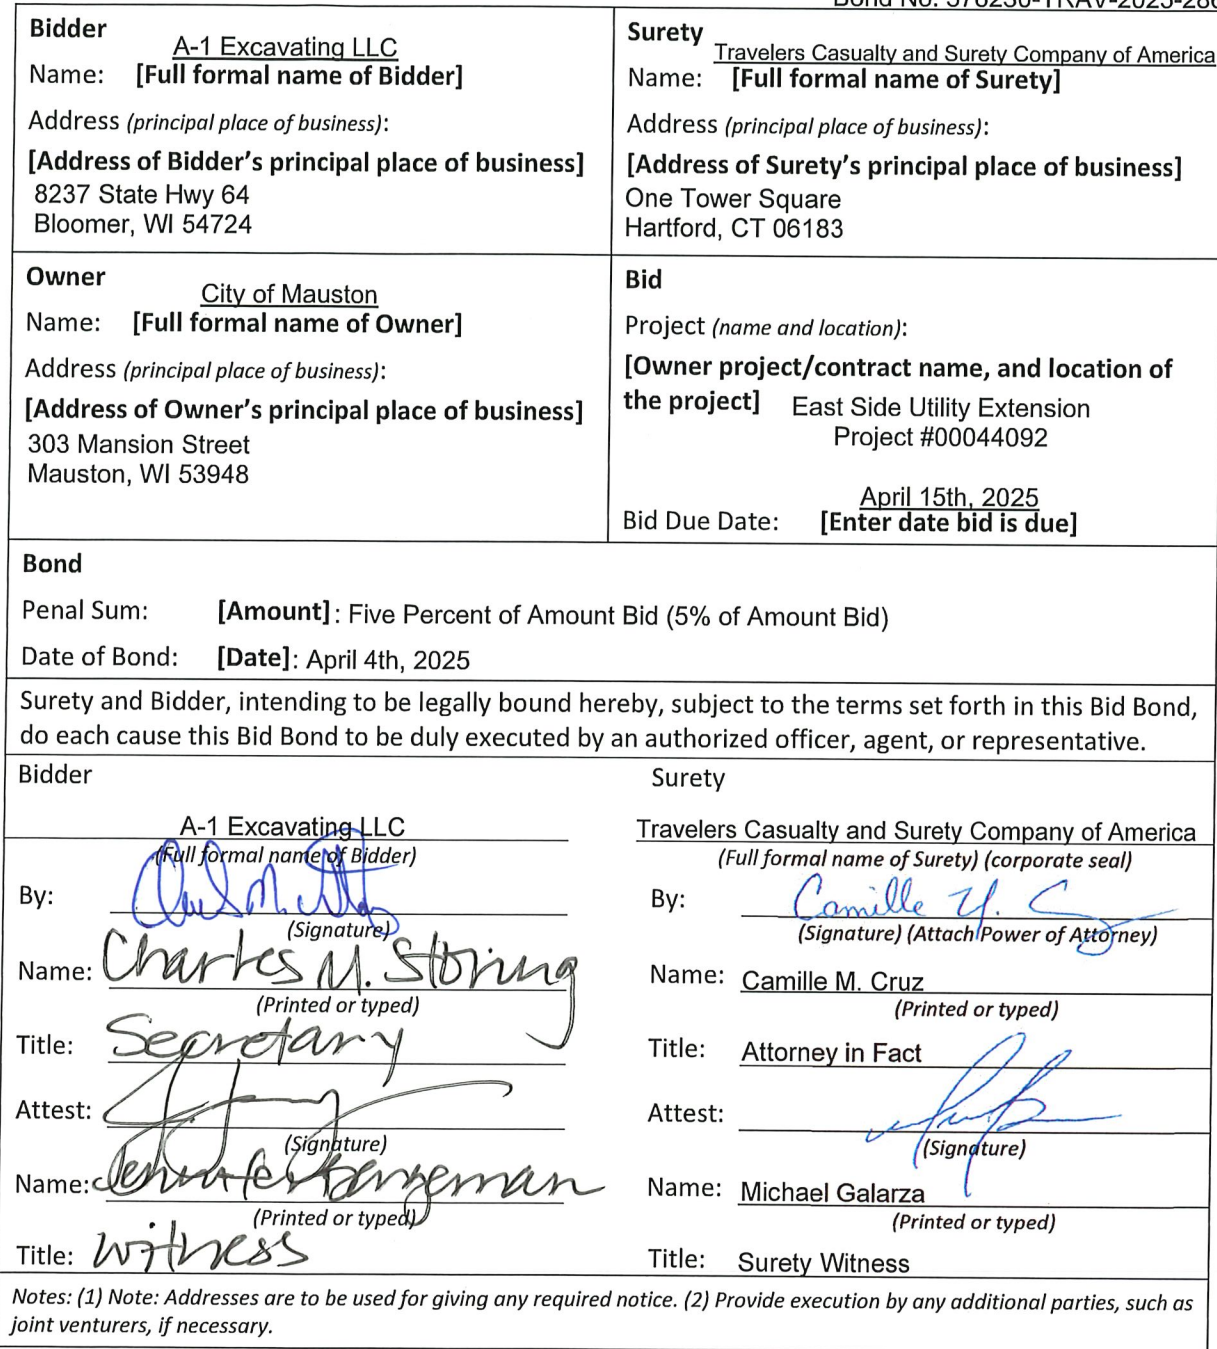 Bond No. 576230-TRAV-2025-280
Bidder
A-1 Excavating LLC
Name: [Full formal name of Bidder]
Address (principal place of business):
[Address of Bidder's principal place of business]
8237 State Hwy 64
Bloomer, WI 54724
Surety
Travelers Casualty and Surety Company of America
Name: [Full formal name of Surety]
Address (principal place of business):
[Address of Surety's principal place of business]
One Tower Square
Hartford, CT 06183
Owner
City of Mauston
Name: [Full formal name of Owner]
Address (principal place of business):
[Address of Owner's principal place of business]
303 Mansion Street
Mauston, WI 53948
Bid
Project (name and location):
[Owner project/contract name, and location of
the project] East Side Utility Extension
Project #00044092
April 15th, 2025
Bid Due Date: [Enter date bid is due]
Bond
Penal Sum: [Amount]: Five Percent of Amount Bid (5% of Amount Bid)
Date of Bond: [Date]: April 4th, 2025
Surety and Bidder, intending to be legally bound hereby, subject to the terms set forth in this Bid Bond,
do each cause this Bid Bond to be duly executed by an authorized officer, agent, or representative.
Bidder
A-1 Excavating LLC
(Full formal name of Bidder)
By:
(Signature)
Name: Charles M. Storing
(Printed or typed)
Title: Secretary
Attest:
(Signature)
Name:
(Printed or typed)
Title: Witness
Surety
Travelers Casualty and Surety Company of America
(Full formal name of Surety) (corporate seal)
By: Camille M. C
(Signature) (Attach Power of Attorney)
Name: Camille M. Cruz
(Printed or typed)
Title: Attorney in Fact
Attest:
(Signature)
Name: Michael Galarza
(Printed or typed)
Title: Surety Witness
Notes: (1) Note: Addresses are to be used for giving any required notice. (2) Provide execution by any additional parties, such as
joint venturers, if necessary.